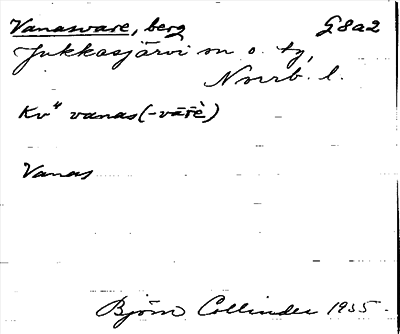 Vanasvare, berg G8a2
Jukkasjärvi sn o. tg,
Norrb. l.
Kv" vanas (-vārè)
Vanas
Björn Collinder 1935.